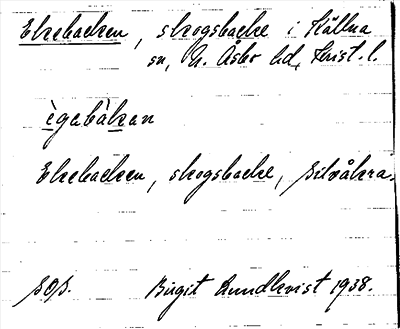 Ekebacken, skogsbacke i Källna
sn, N. Åsbo hd, Krist. l.
ègabàkan
Ekebacken, skogsbacke,
SOS. Birgit Lundkvist 1938.